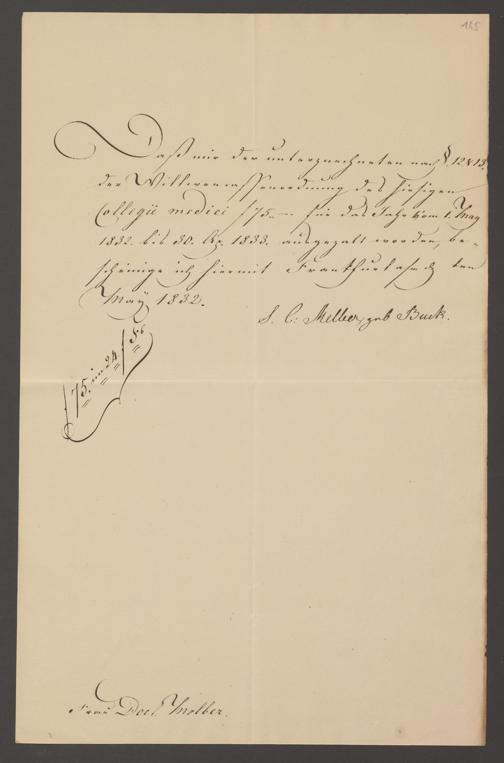 165
Daß mir der unterzeichneten nach § 12 & 13.
der Wittwencassenordnung des hiesigen
Collegii medici f 75.-.- für das Jahr vom 1. May
1832. bis 30. Ap. 1833. ausgezalt worden, be-
scheinige ich hiermit Frankfurt a/m den
May 1832.
S. C. Melber, geb Buck.
f 75. im 24 f
Frau Doct. Melber.